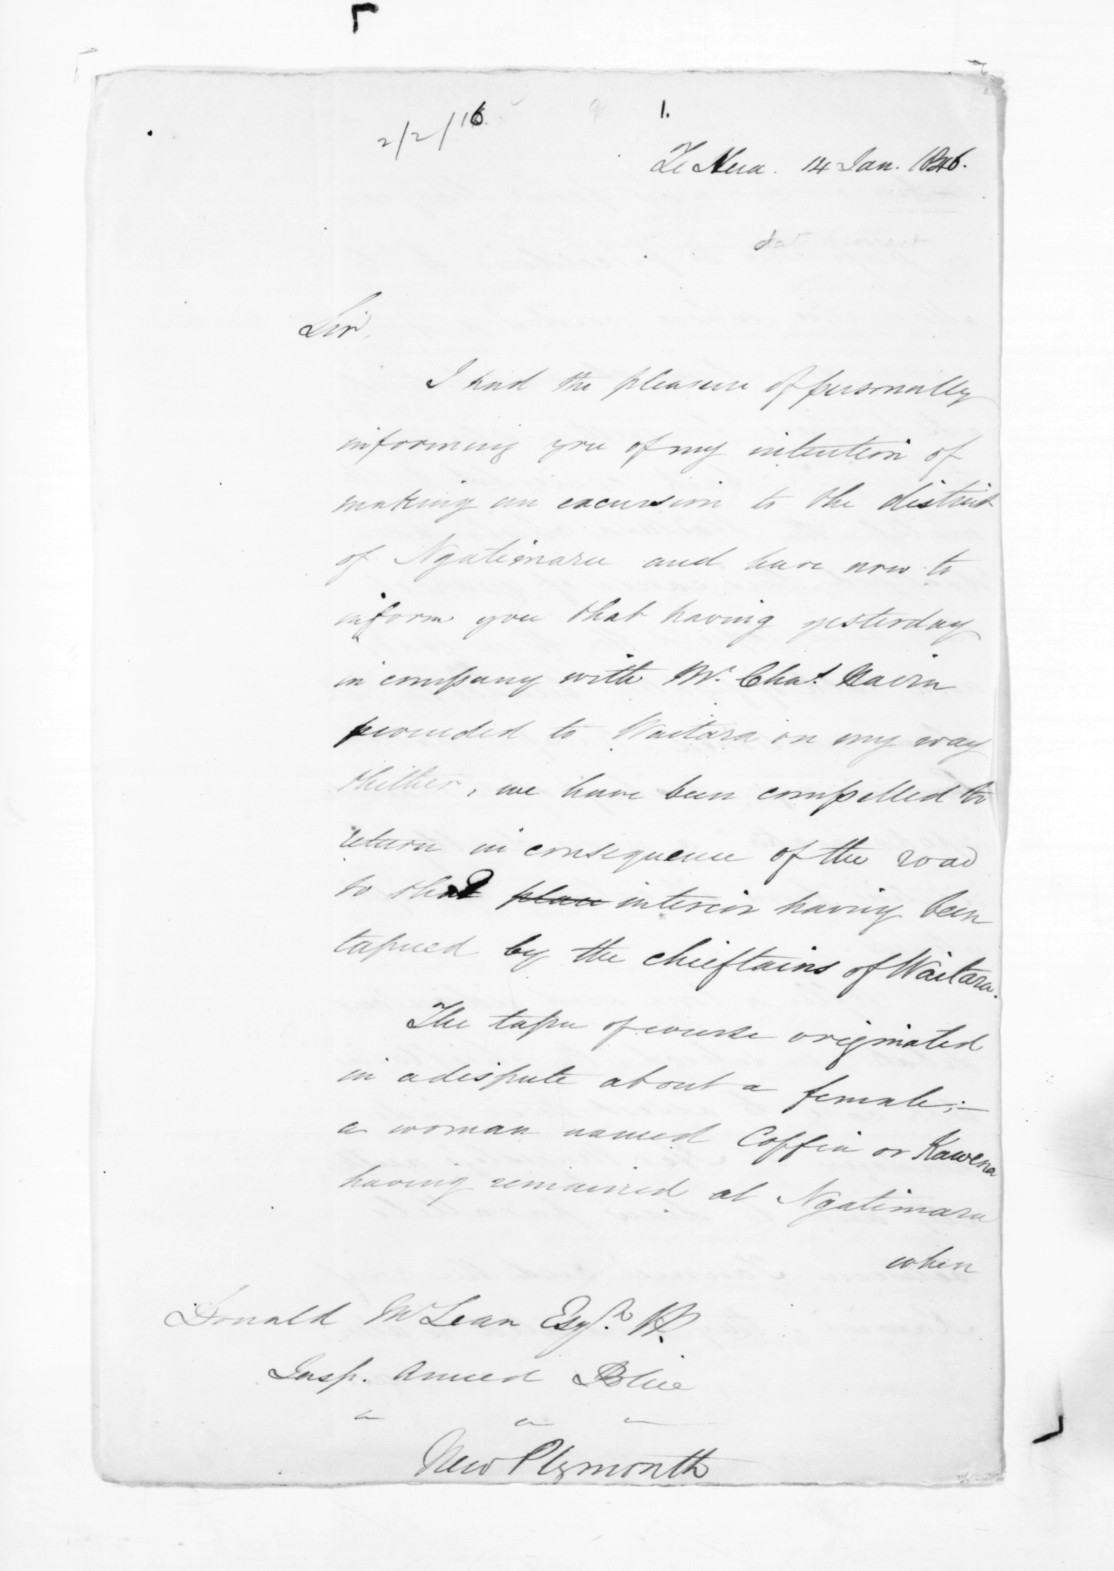 2/2/16.
1.
Te Hua. 14 Jan. 1846.
Sir,
I had the pleasure of personally
informing you of my intention of
making an excursion to the district
of Ngatimaru and have now to
inform you that having yesterday
in company with Mr. Chas.
proceeded to Waitara on my way
thither, we have been compelled to
return in consequence of the road
to that place interior having been
tapued by the chieftains of Waitara.
The tapu of course originated
in a dispute about a female;—
a woman named Coffin or Kawena
having remained at Ngatimaru
when
Donald McLean Esqre.
Insp. Armed Police
New Plymouth